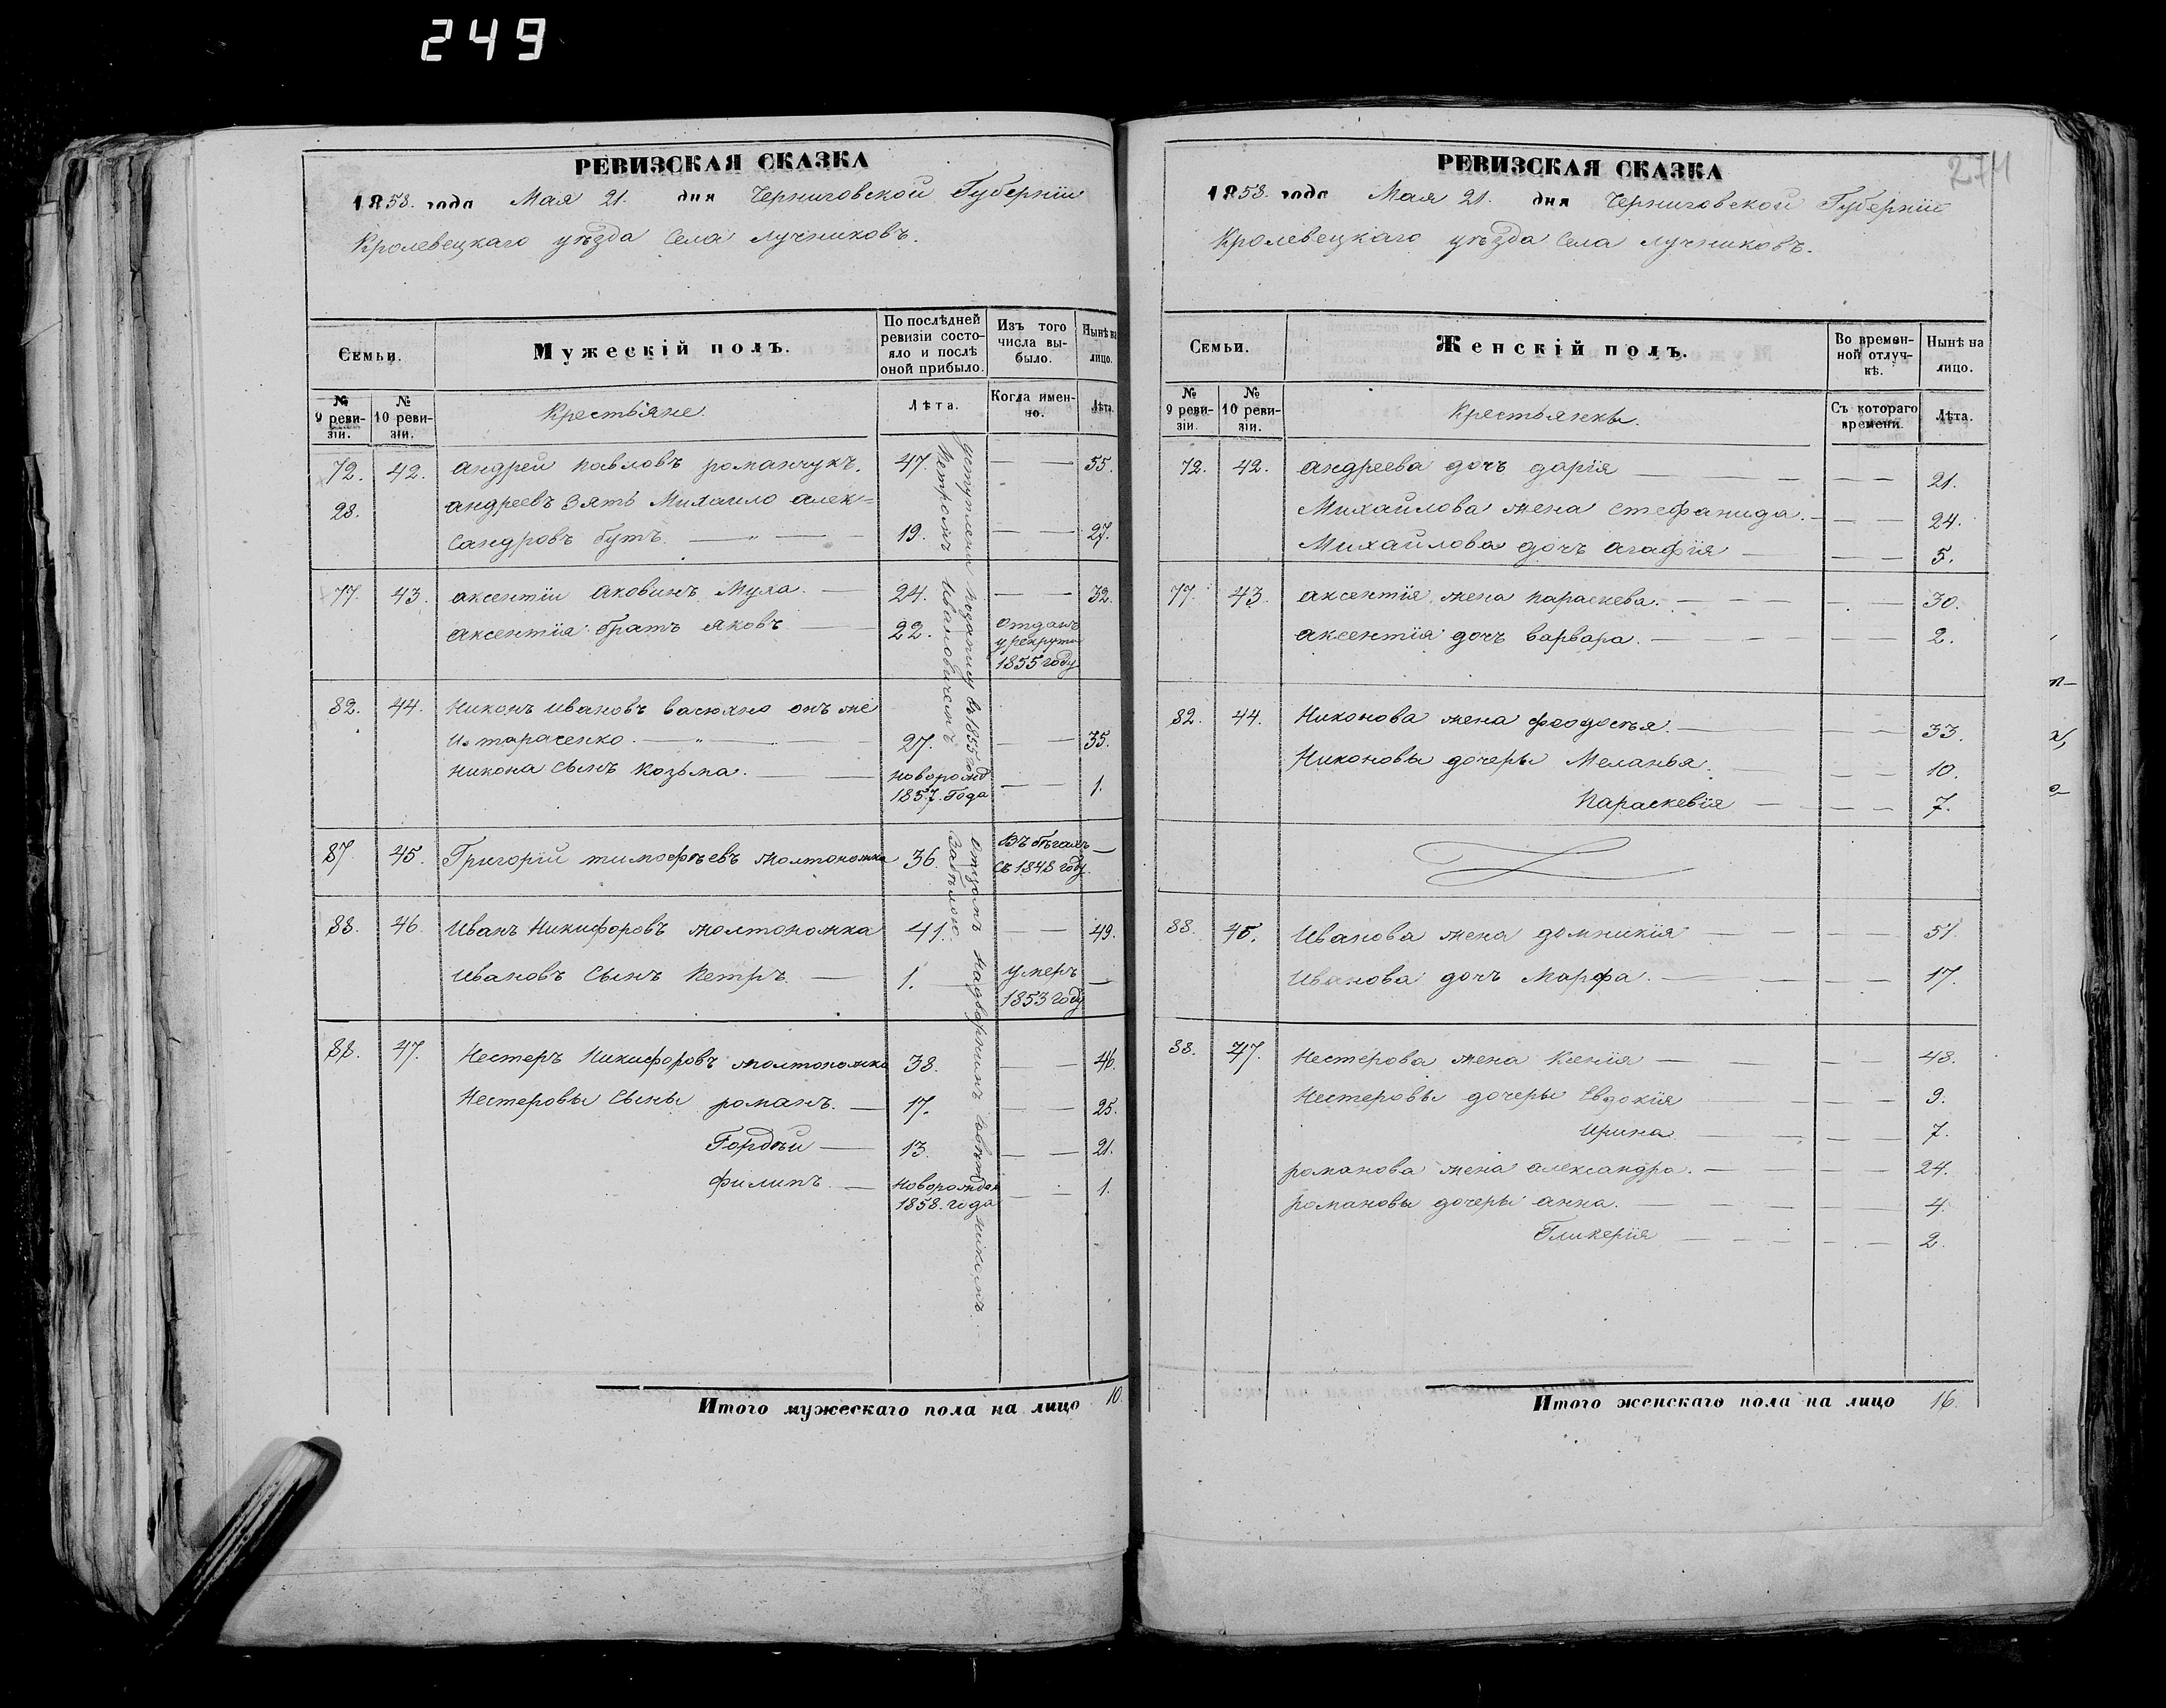 249
РЕВИЗСКАЯ СКАЗКА
1858. года Мая 21. дня Черниговской Губерніи
Кролевецкаго уѣзда Села Лучниковъ.
Семьи.
Мужескій полъ.
По послѣдней ревизіи состояло и послѣ оной прибыло.
Изъ того числа выбыло.
Нынѣ на лицо.
№ 9 ревизіи.
№ 10 ревизіи.
Крестьяне.
Лѣта.
Когда именно.
Лѣта.
72. 42. Андрей Павловъ Романчукъ. 47. — — 55.
28. Андреевъ Зять Михайло Алек=
сандровъ Бутъ. — " — — 19. — — 27.
77. 43. Аксентіи Аковинъ Муха. — 24. — — 32.
Аксентія братъ Яковъ — 22. Отданъ у рекруты 1855 году
82. 44. Никонъ Ивановъ Васюхно онъ же
и Тарасенко. — " — — 27. — — 35.
Никона Сынъ Козьма. — новорожд 1857. Года — — 1.
87. 45. Григорій Тимофѣевъ Жолтоножка 36. Въ бѣгахъ съ 1848 году —
88. 46. Иванъ Никифоровъ Жолтоножка 41. — — 49.
Ивановъ Сынъ Петръ. — 1. умеръ 1853 году —
88. 47. Нестеръ Никифоровъ Жолтоножка 38. — — 46.
Нестеровы Сыны Романъ. — 17. — — 25.
Гордѣй — 13. — — 21.
Филипъ. — Новорожден 1858. года — — 1.
Итого мужескаго пола на лицо 10.
274
РЕВИЗСКАЯ СКАЗКА
1858. года Мая 21. дня Черниговской Губерніи
Кролевецкаго уѣзда Села Лучниковъ.
Семьи.
Женскій полъ.
Во временной отлучкѣ.
Нынѣ на лицо.
№ 9 ревизіи.
№ 10 ревизіи.
Крестьянки.
Съ котораго времени.
Лѣта.
72. 42. Андреева дочъ Дарія — — — — 21.
Михайлова жена Стефанида. — — — 24.
Михайлова дочъ Агафія — — — 5.
77. 43. Аксентія жена Параскева. — — — — 30.
Аксентія дочъ Варвара. — — — — 2.
82. 44. Никонова жена Феодосья. — — — 33.
Никоновы дочеры Меланья. — — — 10.
Параскевія — — — 7.
88. 45. Иванова жена Домникія — — — — 51.
Иванова дочъ Марфа. — — — — 17.
88. 47. Нестерова жена Ксенія — — — — 48.
Нестеровы дочеры Евдокія — — — — 9.
Ирина — — — — 7.
Романова жена Александра. — — — — 24.
Романовы дочеры Анна. — — — — 4.
Гликерія — — — — 2.
Итого женскаго пола на лицо 16.